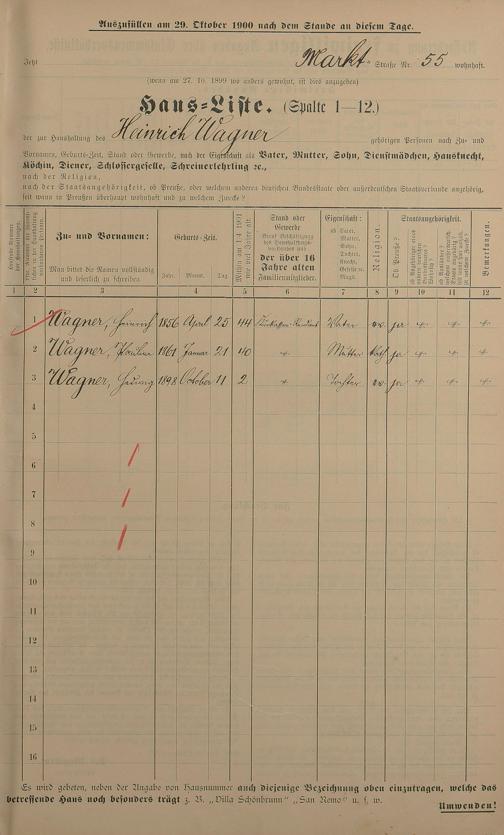 Auszufüllen am 29. Oktober 1900 nach dem Stande an diesem Tage.
Jetzt Markt Straße Nr. 55 wohnhaft.
(wenn am 27. 10. 1899 wo anders gewohnt, ist dies anzugeben)
Haus-Liste. (Spalte 1—12.)
der zur Haushaltung des Heinrich Wagner gehörigen Personen nach Zu- und
Vornamen, Geburts-Zeit, Stand oder Gewerbe, nach der Eigenschaft als Vater, Mutter, Sohn, Dienstmädchen, Hausknecht,
Köchin, Diener, Schlossergeselle, Schreinerlehrling ec.,
nach der Religion,
nach der Staatsangehörigkeit, ob Preuße, oder welchem anderen deutschen Bundesstaate oder außerdeutschen Staatsverbande angehörig,
seit wann in Preußen überhaupt wohnhaft und zu welchem Zwecke?
Zu- und Vornamen:
Man bittet die Namen vollständig und leserlich zu schreiben
Geburts-Zeit.
Jahr. Monat. Tag
Stand oder Gewerbe
der über 16 Jahre alten Familienglieder.
Eigenschaft:
ob Vater, Mutter, Sohn, Tochter, Knecht, Geselle rc. Magd.
Religion.
Staatsangehörigkeit.
Ob Preuße?
Bemerkungen.
1 2 3 4 5 6 7 8 9 10 11 12
1 Wagner, Heinrich 1856 April 25 44 Vater ev. ja + + +
2 Wagner, Paulina 1861 Januar 21 40 + Mutter kath ja + + +
3 Wagner, Hedwig 1898 October 11 2 + Tochter ev. ja + + +
4
5
6
7
8
9
10
11
12
13
14
15
16
Es wird gebeten, neben der Angabe von Hausnummer auch diejenige Bezeichnung oben einzutragen, welche das
betreffende Haus noch besonders trägt z. B. „Villa Schönbrunn" „San Remo" u. s. w.
Umwenden!